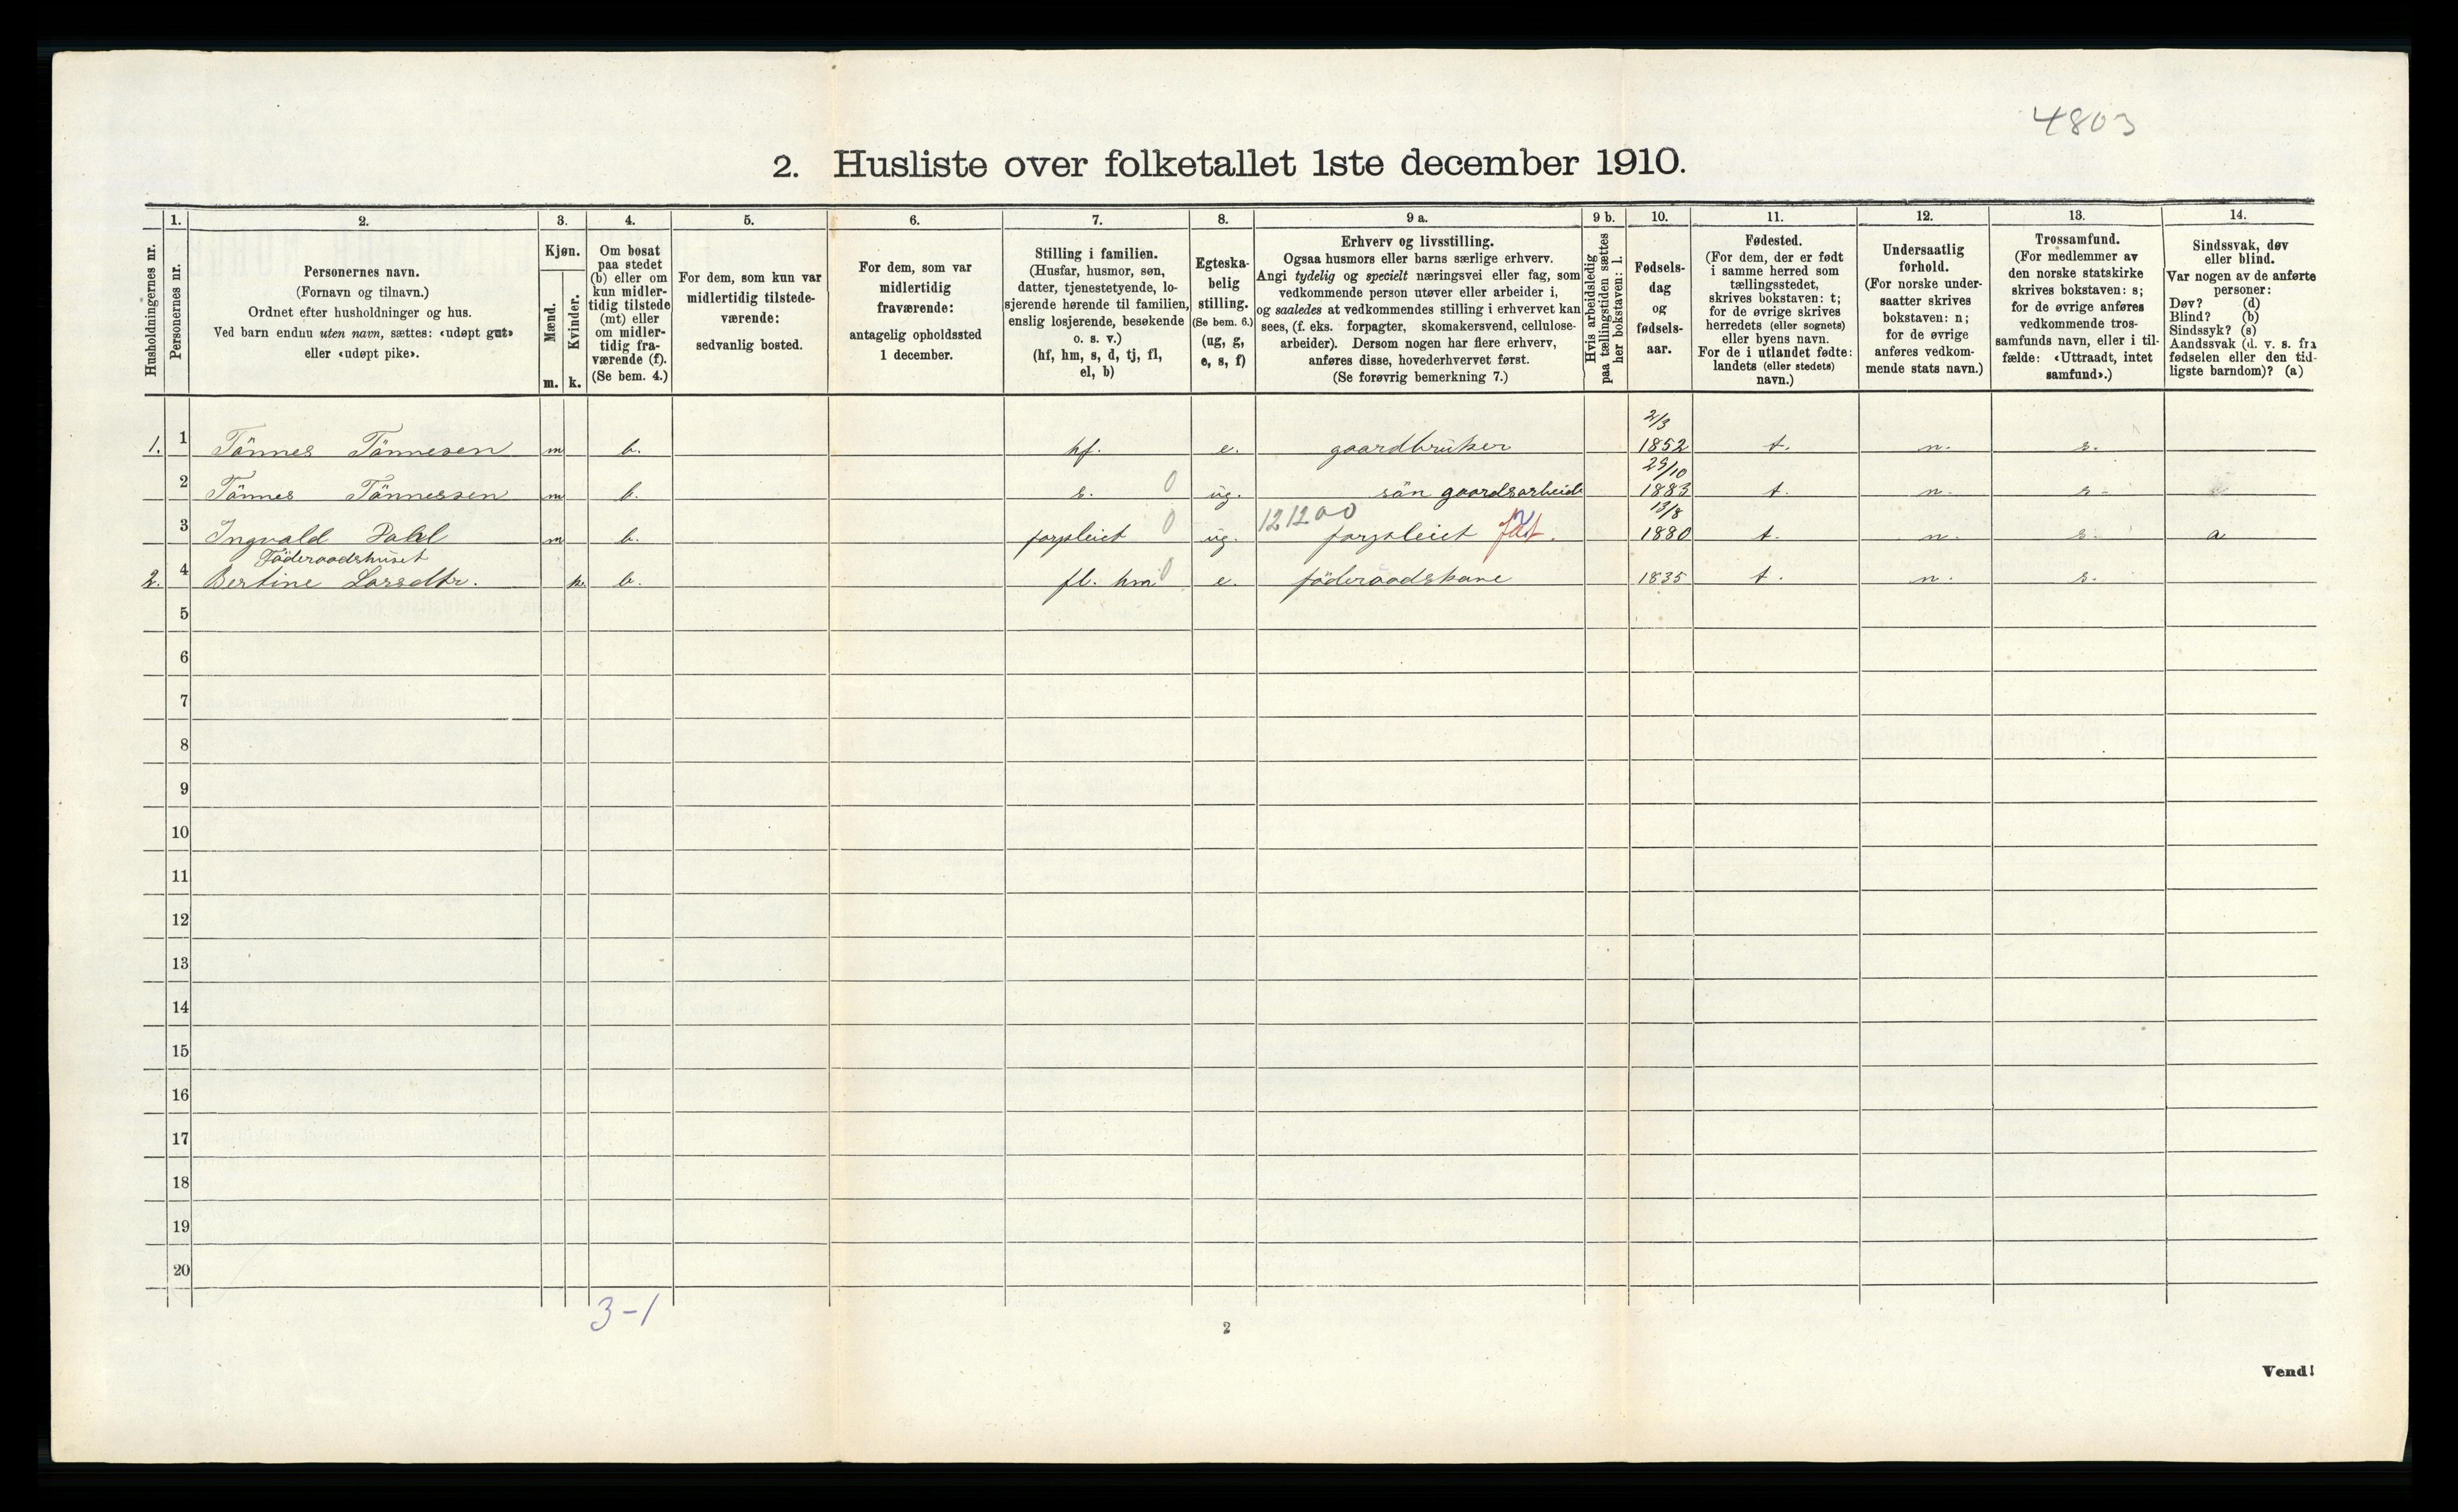 4803
2. Husliste over folketallet 1ste december 1910.
Husholdningernes nr.
1. Personernes nr.
2. Personernes navn.
(Fornavn og tilnavn.)
Ordnet efter husholdninger og hus.
Ved barn endnu uten navn, sættes: «udøpt gut»
eller «udøpt pike».
3. Kjøn.
Mænd. m.
Kvinder. k.
4. Om bosat
paa stedet
(b) eller om
kun midler-
tidig tilstede
(mt) eller
om midler-
tidig fra-
værende (f).
(Se bem. 4.)
5. For dem, som kun var
midlertidig tilstede-
værende:
sedvanlig bosted.
6. For dem, som var
midlertidig
fraværende:
antagelig opholdssted
1 december.
7. Stilling i familien.
(Husfar, husmor, søn,
datter, tjenestetyende, lo-
sjerende hørende til familien,
enslig losjerende, besøkende
o. s. v.)
(hf, hm, s, d, tj, fl,
el, b)
8. Egteska-
belig
stilling.
(Se bem. 6.)
(ug, g,
e, s, f)
9 a. Erhverv og livsstilling.
Ogsaa husmors eller barns særlige erhverv.
Angi tydelig og specielt næringsvei eller fag, som
vedkommende person utøver eller arbeider i,
og saaledes at vedkommendes stilling i erhvervet kan
sees, (f. eks. forpagter, skomakersvend, cellulose-
arbeider). Dersom nogen har flere erhverv,
anføres disse, hovederhvervet først.
(Se forøvrig bemerkning 7.)
9 b. Hvis arbeidsledig
paa tællingstiden sættes
her bokstaven: l.
10. Fødsels-
dag
og
fødsels-
aar.
11. Fødested.
(For dem, der er født
i samme herred som
tællingsstedet,
skrives bokstaven: t;
for de øvrige skrives
herredets (eller sognets)
eller byens navn.
For de i utlandet fødte:
landets (eller stedets)
navn.)
12. Undersaatlig
forhold.
(For norske under-
saatter skrives
bokstaven: n;
for de øvrige
anføres vedkom-
mende stats navn.)
13. Trossamfund.
(For medlemmer av
den norske statskirke
skrives bokstaven: s;
for de øvrige anføres
vedkommende tros-
samfunds navn, eller i til-
fælde: «Uttraadt, intet
samfund».)
14. Sindssvak, døv
eller blind.
Var nogen av de anførte
personer:
Døv? (d)
Blind? (b)
Sindssyk? (s)
Aandssvak (d. v. s. fra
fødselen eller den tid-
ligste barndom)? (a)
1. 1 Tönnes Tönnesen m b. hf. e. gaardbruker 2/3 1852 t. n. s.
2 Tönnes Tönnessen m b. s. 0 ug. sön gaardsarbeide 29/10 1883 t. n. s.
3 Ingvald Dahl m b. forpleiet 0 ug. 121200 forpleiet 13/8 1880 t. n. s. a
Föderaadshuset
2. 4 Bertine Larsdtr. k. b. fl. hm 0 e. föderaadskone 1835 t. n. s.
5
6
7
8
9
10
11
12
13
14
15
16
17
18
19
20
3-1
2
Vend!